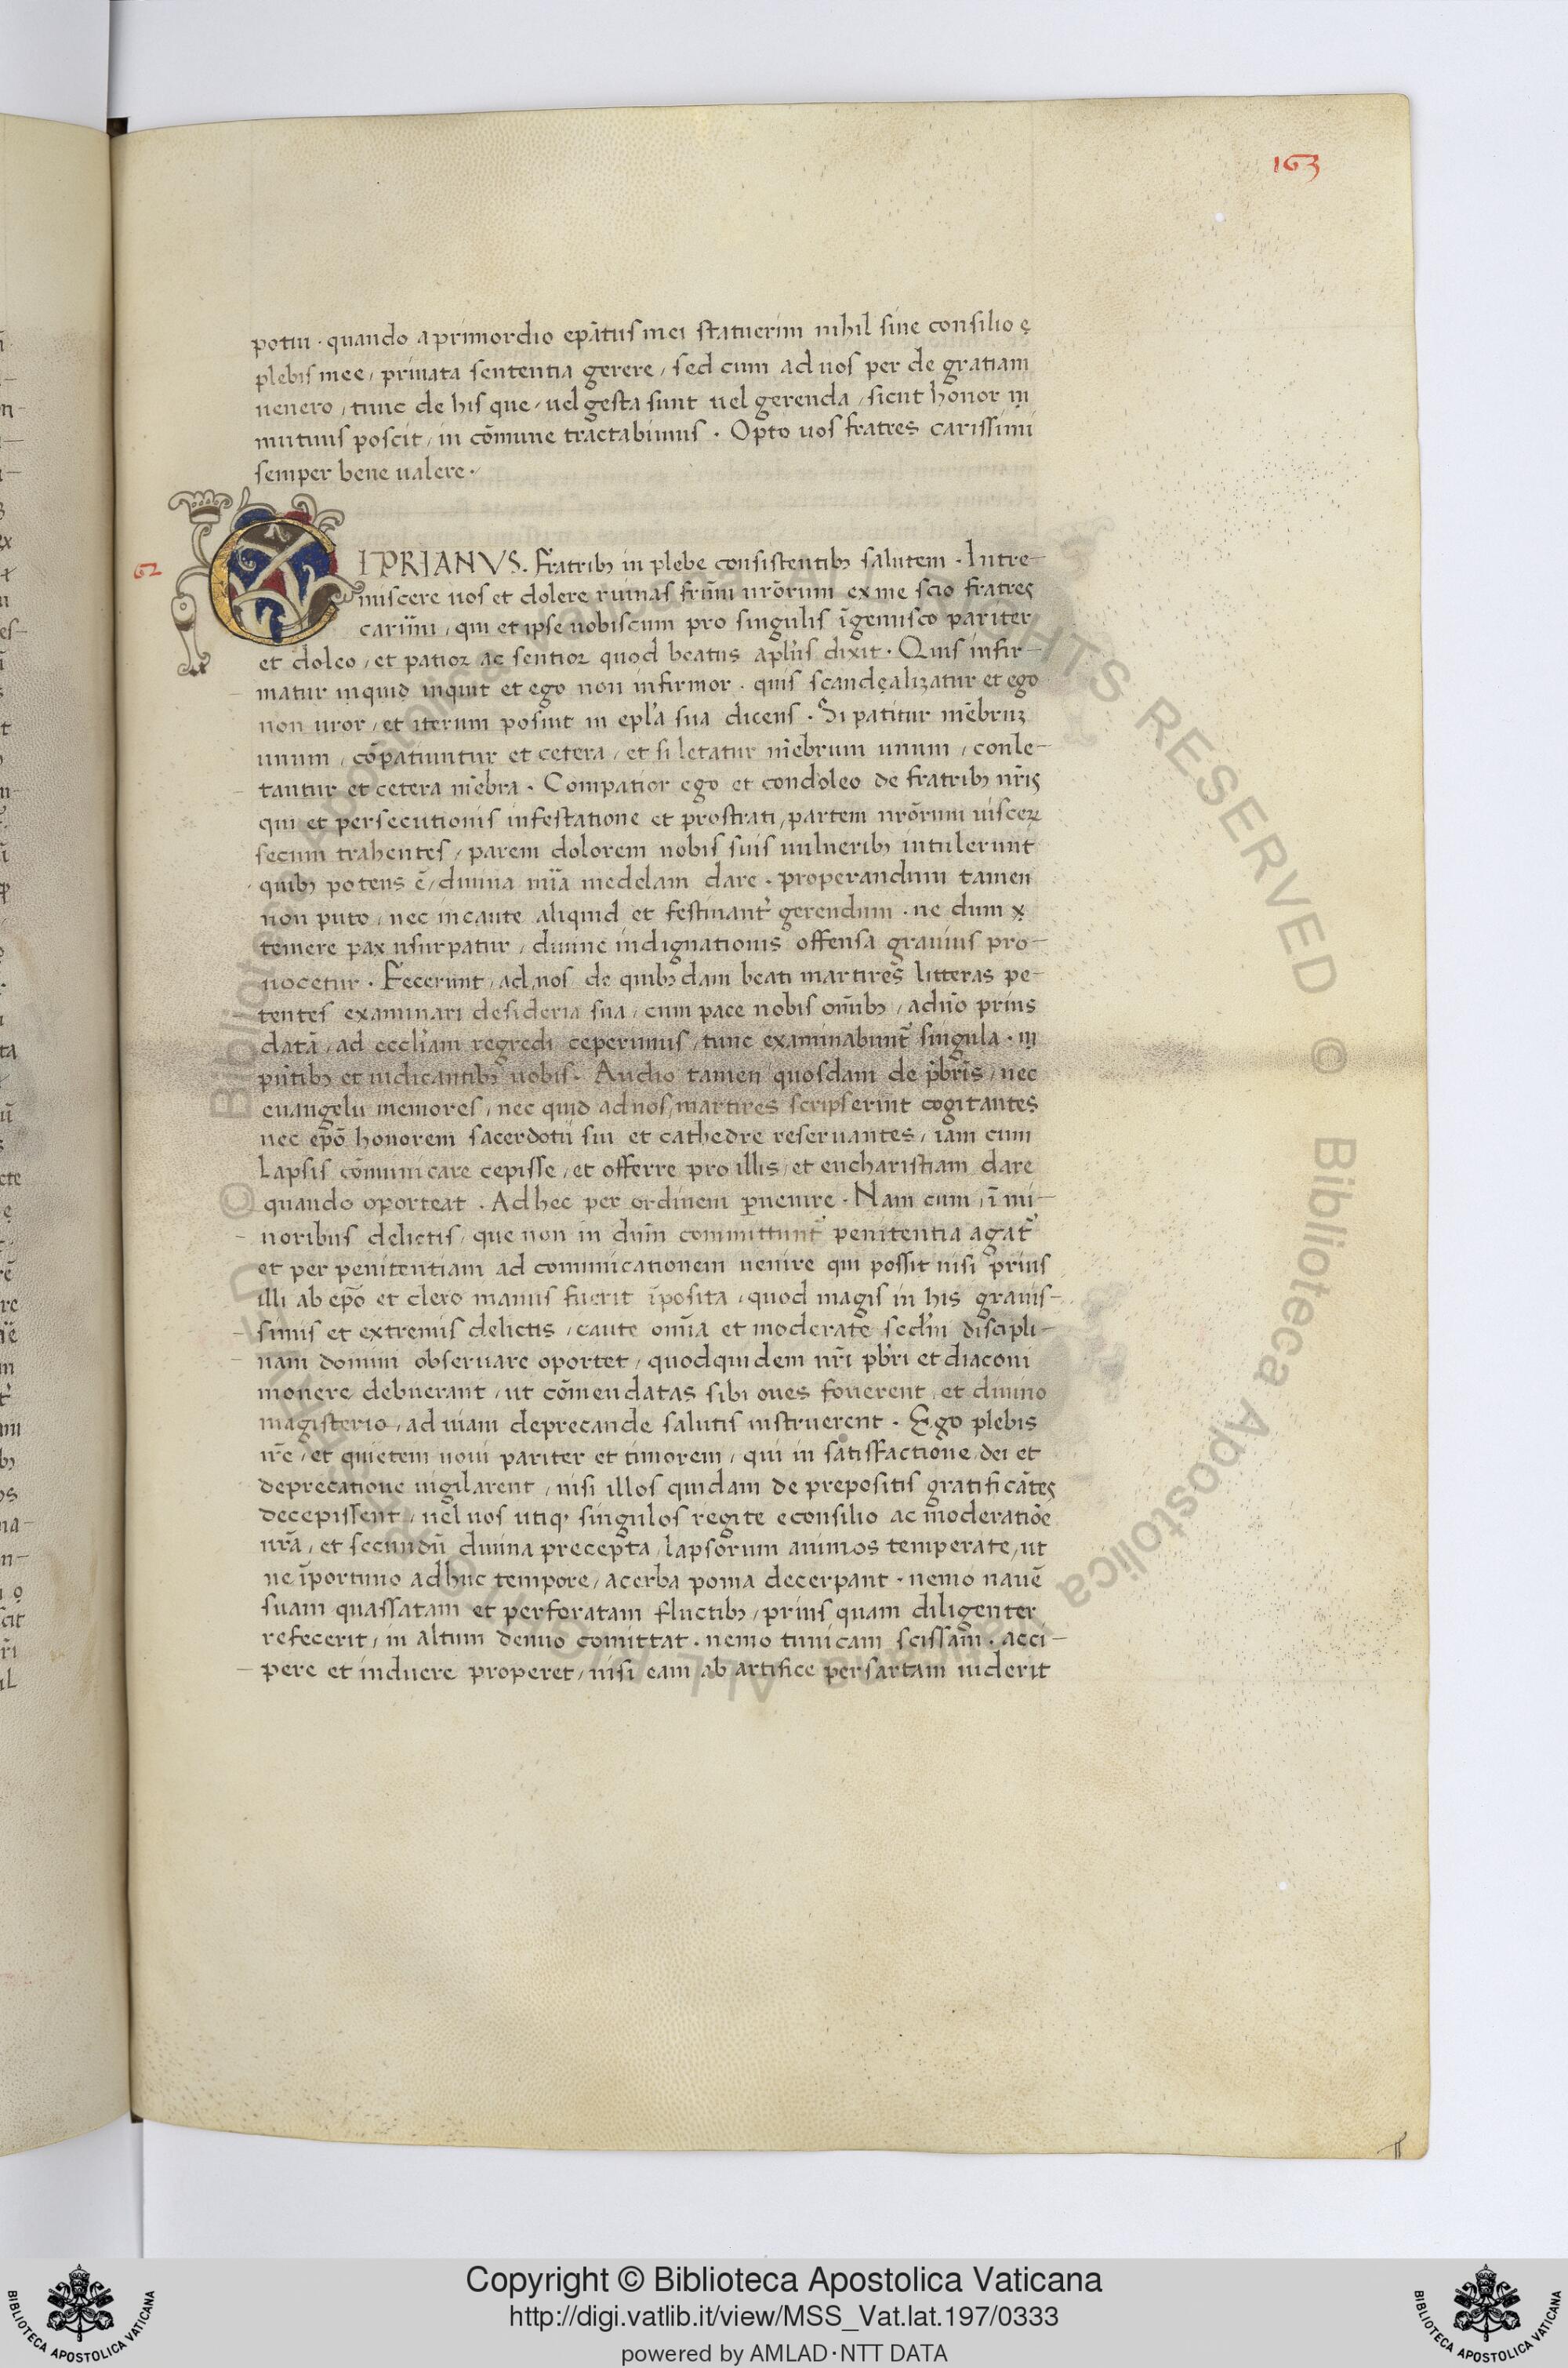 163
potui · quando a primordio ep̄atus mei statuerim nihil sine consilio ę
plebis mee, priuata sententia gerere, sed cum ad uos per dei gratiam
uenero, tunc de his que, uel gesta sunt uel gerenda, sicut honor m
mutuus poscit, in cōmune tractabimus · Opto uos fratres carissimi
semper bene ualere ·
62
CIPRIANVS. Fratribꝫ in plebe consistentibꝫ salutem · Intre-
miscere uos et dolere ruinas frūm nrōrum ex me scio fratres
cariīmi, qui et ipse uobiscum pro singulis īgemisco pariter
et doleo, et patior ac sentior quod beatus apl̄us dixit · Quis infir-
matur inquid inquit et ego non infirmor · quis scandęalizatur et ego
non uror, et iterum posuit in epl̄a sua dicens · Si patitur mēbruꝫ
unum, cōpatiuntur et cetera, et si letatur mēbrum unum, conle-
tantur et cetera mēbra · Compatior ego et condoleo de fratribꝫ nr̄is
qui et persecutionis infestatione et prostrati, partem nrōrum uisceꝝ
secum trahentes, parem dolorem nobis suis uulneribꝫ intulerunt
quibꝫ potens ē, diuina mīa medelam dare · properandum tamen
non puto, nec incaute aliquid et festinant᷑ gerendum · ne dum x
temere pax usurpatur, diuine indignationis offensa grauius pro-
uocetur · Fecerunt, ad nos de quibꝫdam beati martires litteras pe-
tentes examinari desideria sua, cum pace nobis om̄ibꝫ, a dn̄o prius
datā, ad eccl̄iam regredi ceperimus, tunc examinabunt᷑ singula · m
pn̄tibꝫ et iudicantibꝫ uobis · Audio tamen quosdam de pb̄ris, nec
euangelii memores, nec quid ad nos, martires scripserint cogitantes
nec ep̄o honorem sacerdotii sui et cathedre reseruantes, iam cum
lapsis cōmunicare cepisse, et offerre pro illis, et eucharistiam dare
quando oporteat · Ad hec per ordinem ꝑuenire · Nam cum, ī mi-
noribus delictis, que non in dn̄m committunt᷑ penitentia agat᷑
et per penitentiam ad comunicationem uenire qui possit nisi prius
illi ab ep̄o et clero manus fuerit īposita, quod magis in his grauis-
simis et extremis delictis, caute om̄ia et moderate secd̄m discipli-
nam domini obseruare oportet, quod quidem nr̄i pb̄ri et diaconi
monere debuerant, ut cōmendatas sibi oues fouerent, et diuino
magisterio, ad uiam deprecande salutis instruerent · Ego plebis
nr̄e, et quietem noui pariter et timorem, qui in satisfactione dei et
deprecatione uigilarent, nisi illos quidam de prepositis gratificātes
decepissent, uel uos utiq᷑ singulos regite econsilio ac moderatiōe
ur̄a, et secundū diuina precepta, lapsorum animos temperate, ut
ne īportuno adhuc tempore, acerba poma decerpant · nemo nauē
suam quassatam et perforatam fluctibꝫ, prius quam diligenter
refecerit, in altum denuo comittat · nemo tunicam scissam · acci-
pere et induere properet, nisi eam ab artifice persartam uiderit
Copyright © Biblioteca Apostolica Vaticana
http://digi.vatlib.it/view/MSS_Vat.lat.197/0333
powered by AMLAD·NTT DATA
BIBLIOTECA APOSTOLICA VATICANA
BIBLIOTECA APOSTOLICA VATICANA